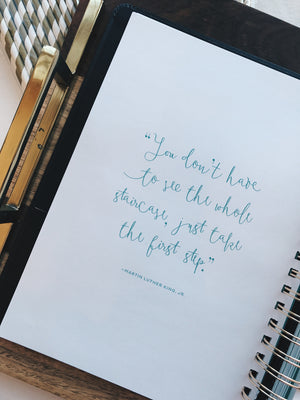 “You don't have
to see the whole
staircase, just take
the first step.”
-MARTIN LUTHER KING, JR.